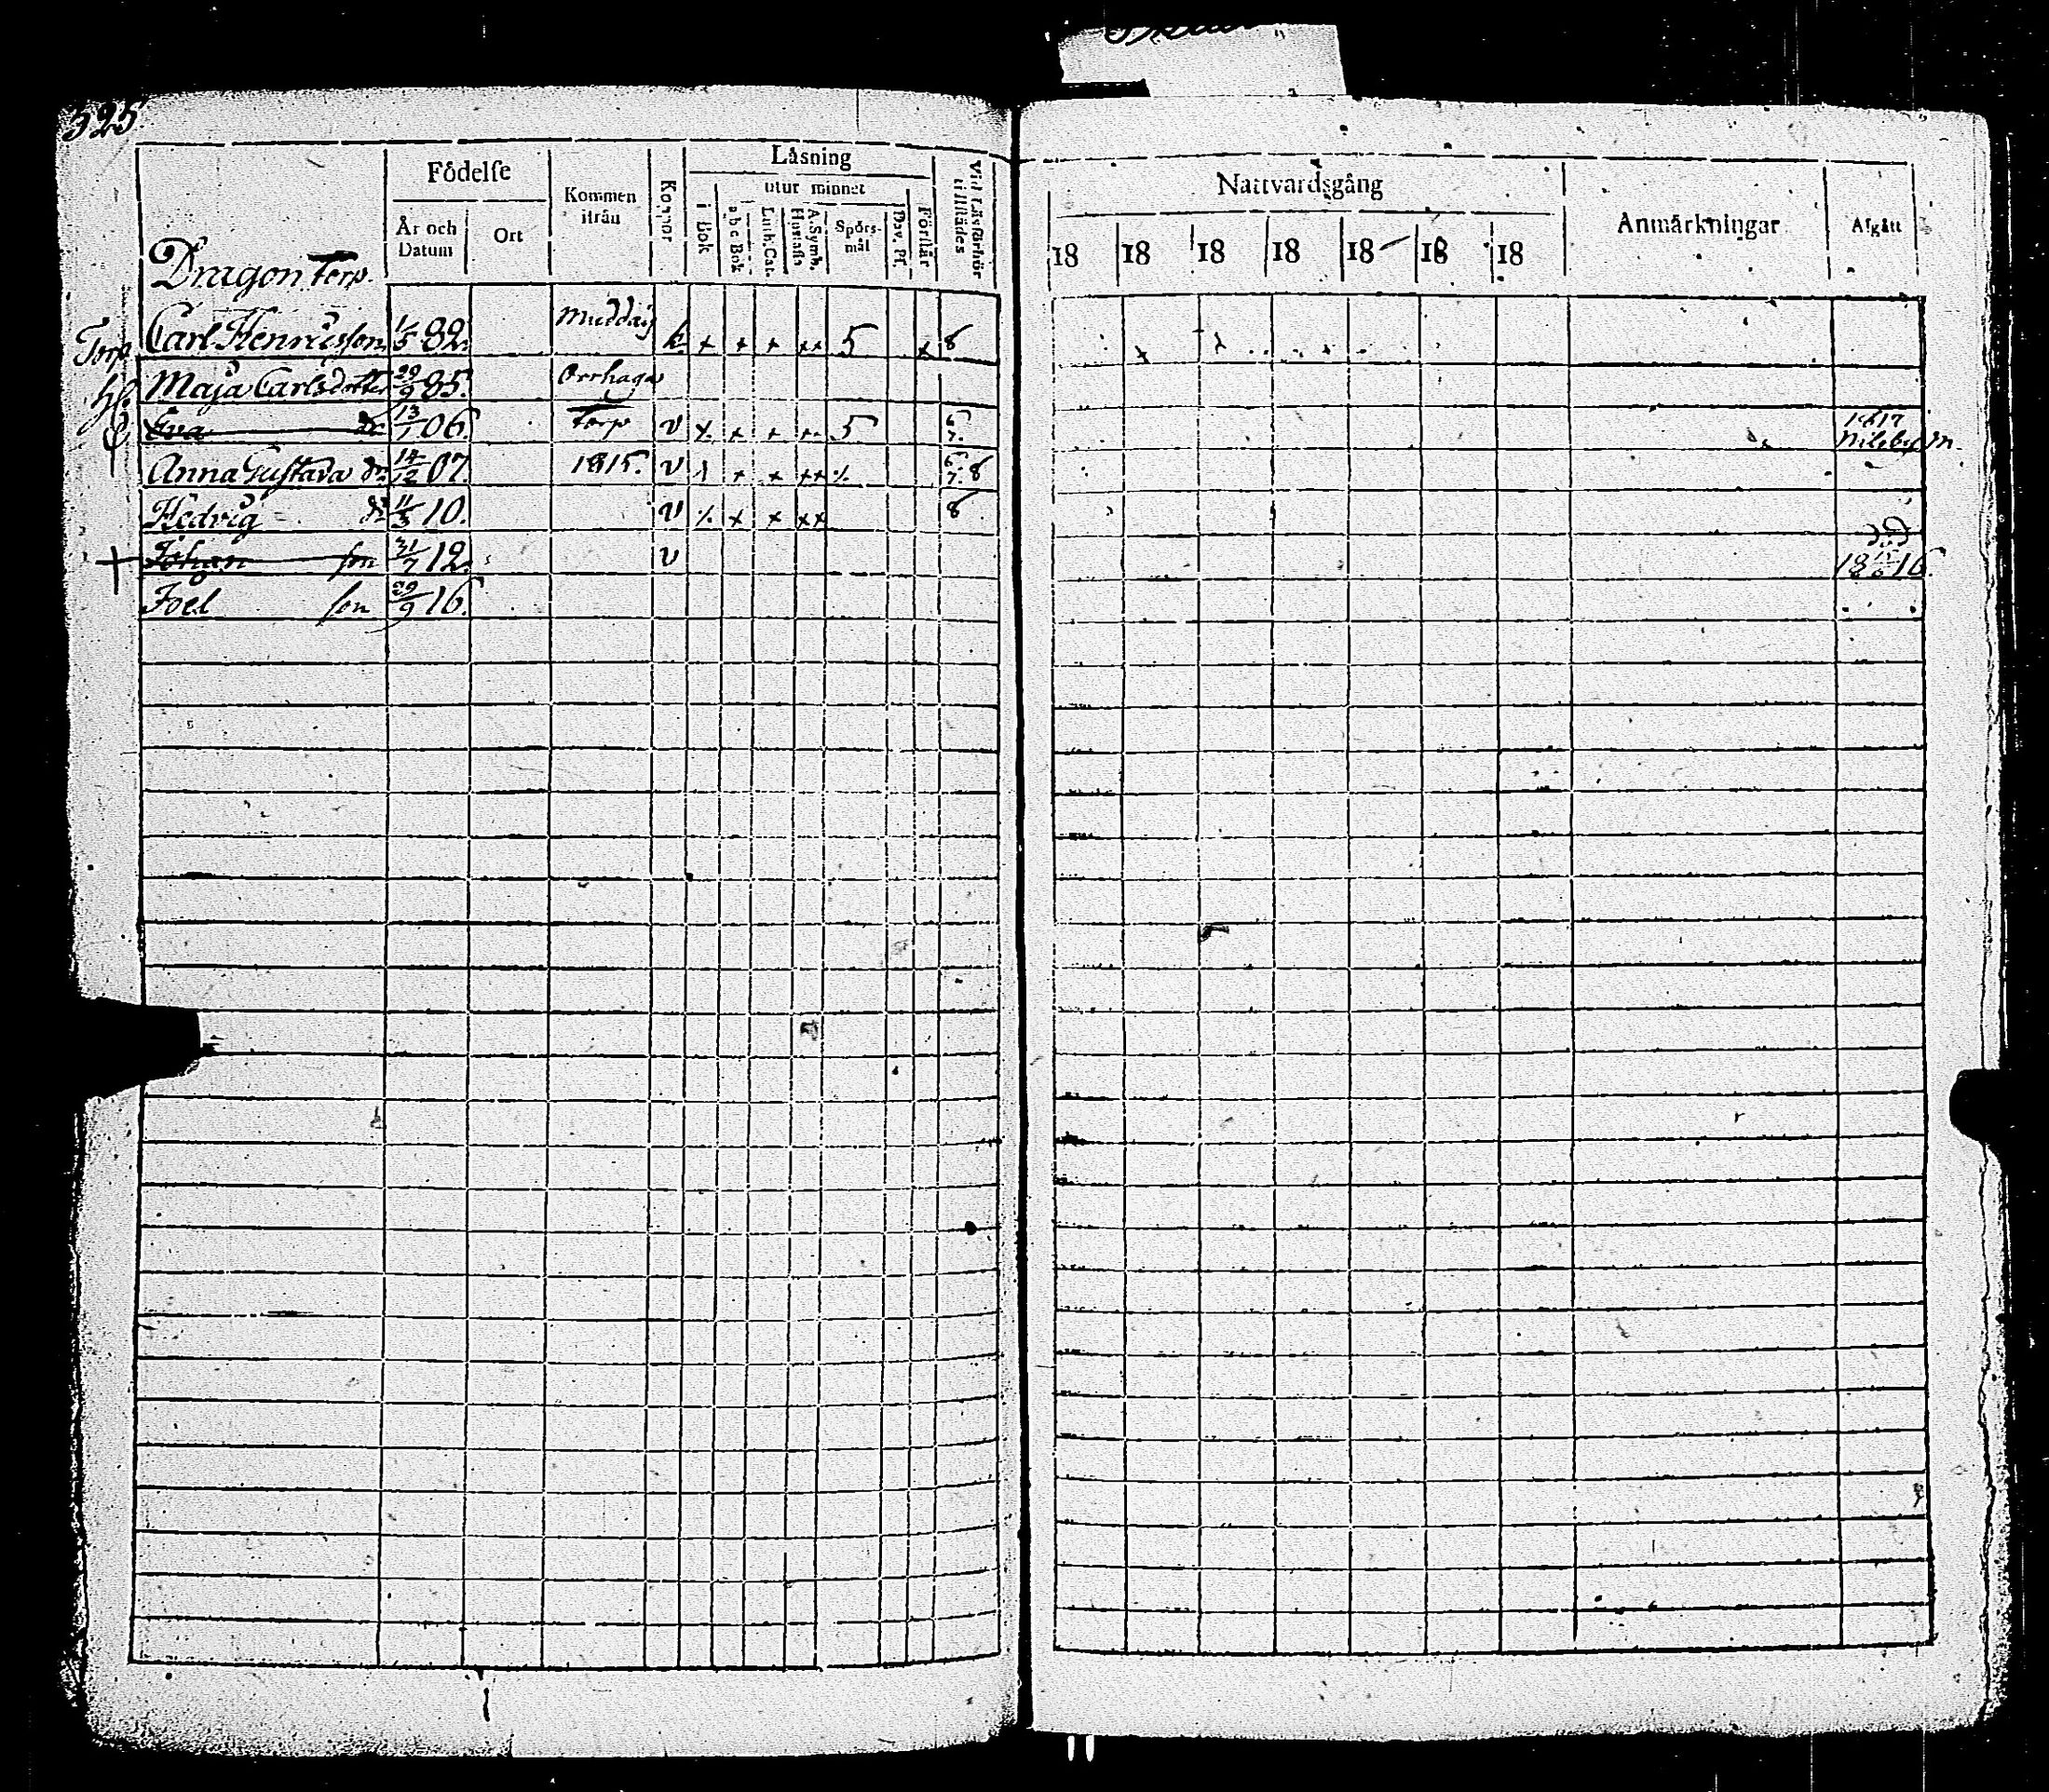 325.
Födelse
Läsning
Nattvardsgång
Kommen ifrån
Koppor
utur minnet
Anmärkningar
Afgått
År och Datum
Ort
i Bok
abc Bok
Luth. Cat.
A. Symb. Hustafl.
Spörsmål
Dav. Ps.
Förstår
Vid Läsförhör tillstädes
18 18 18 18 18 18 18
Dragon Torp.
Torp Carl Henricsson 1/5 82. k. x x x xx 5 x 8
h. Maja Carlsdotter 29/9 85. Orrhaga
Eva dr 13/1 06. Torp v x x x xx 5 6/7. 1817
Anna Gustava dr. 14/12 07. 1815. v x x xx 6/7. 8
Hedvig dr 11/3 10. v x x xx 8
† Johan son 31/7 12. v död 18 16.
Joel son 29/9 16.